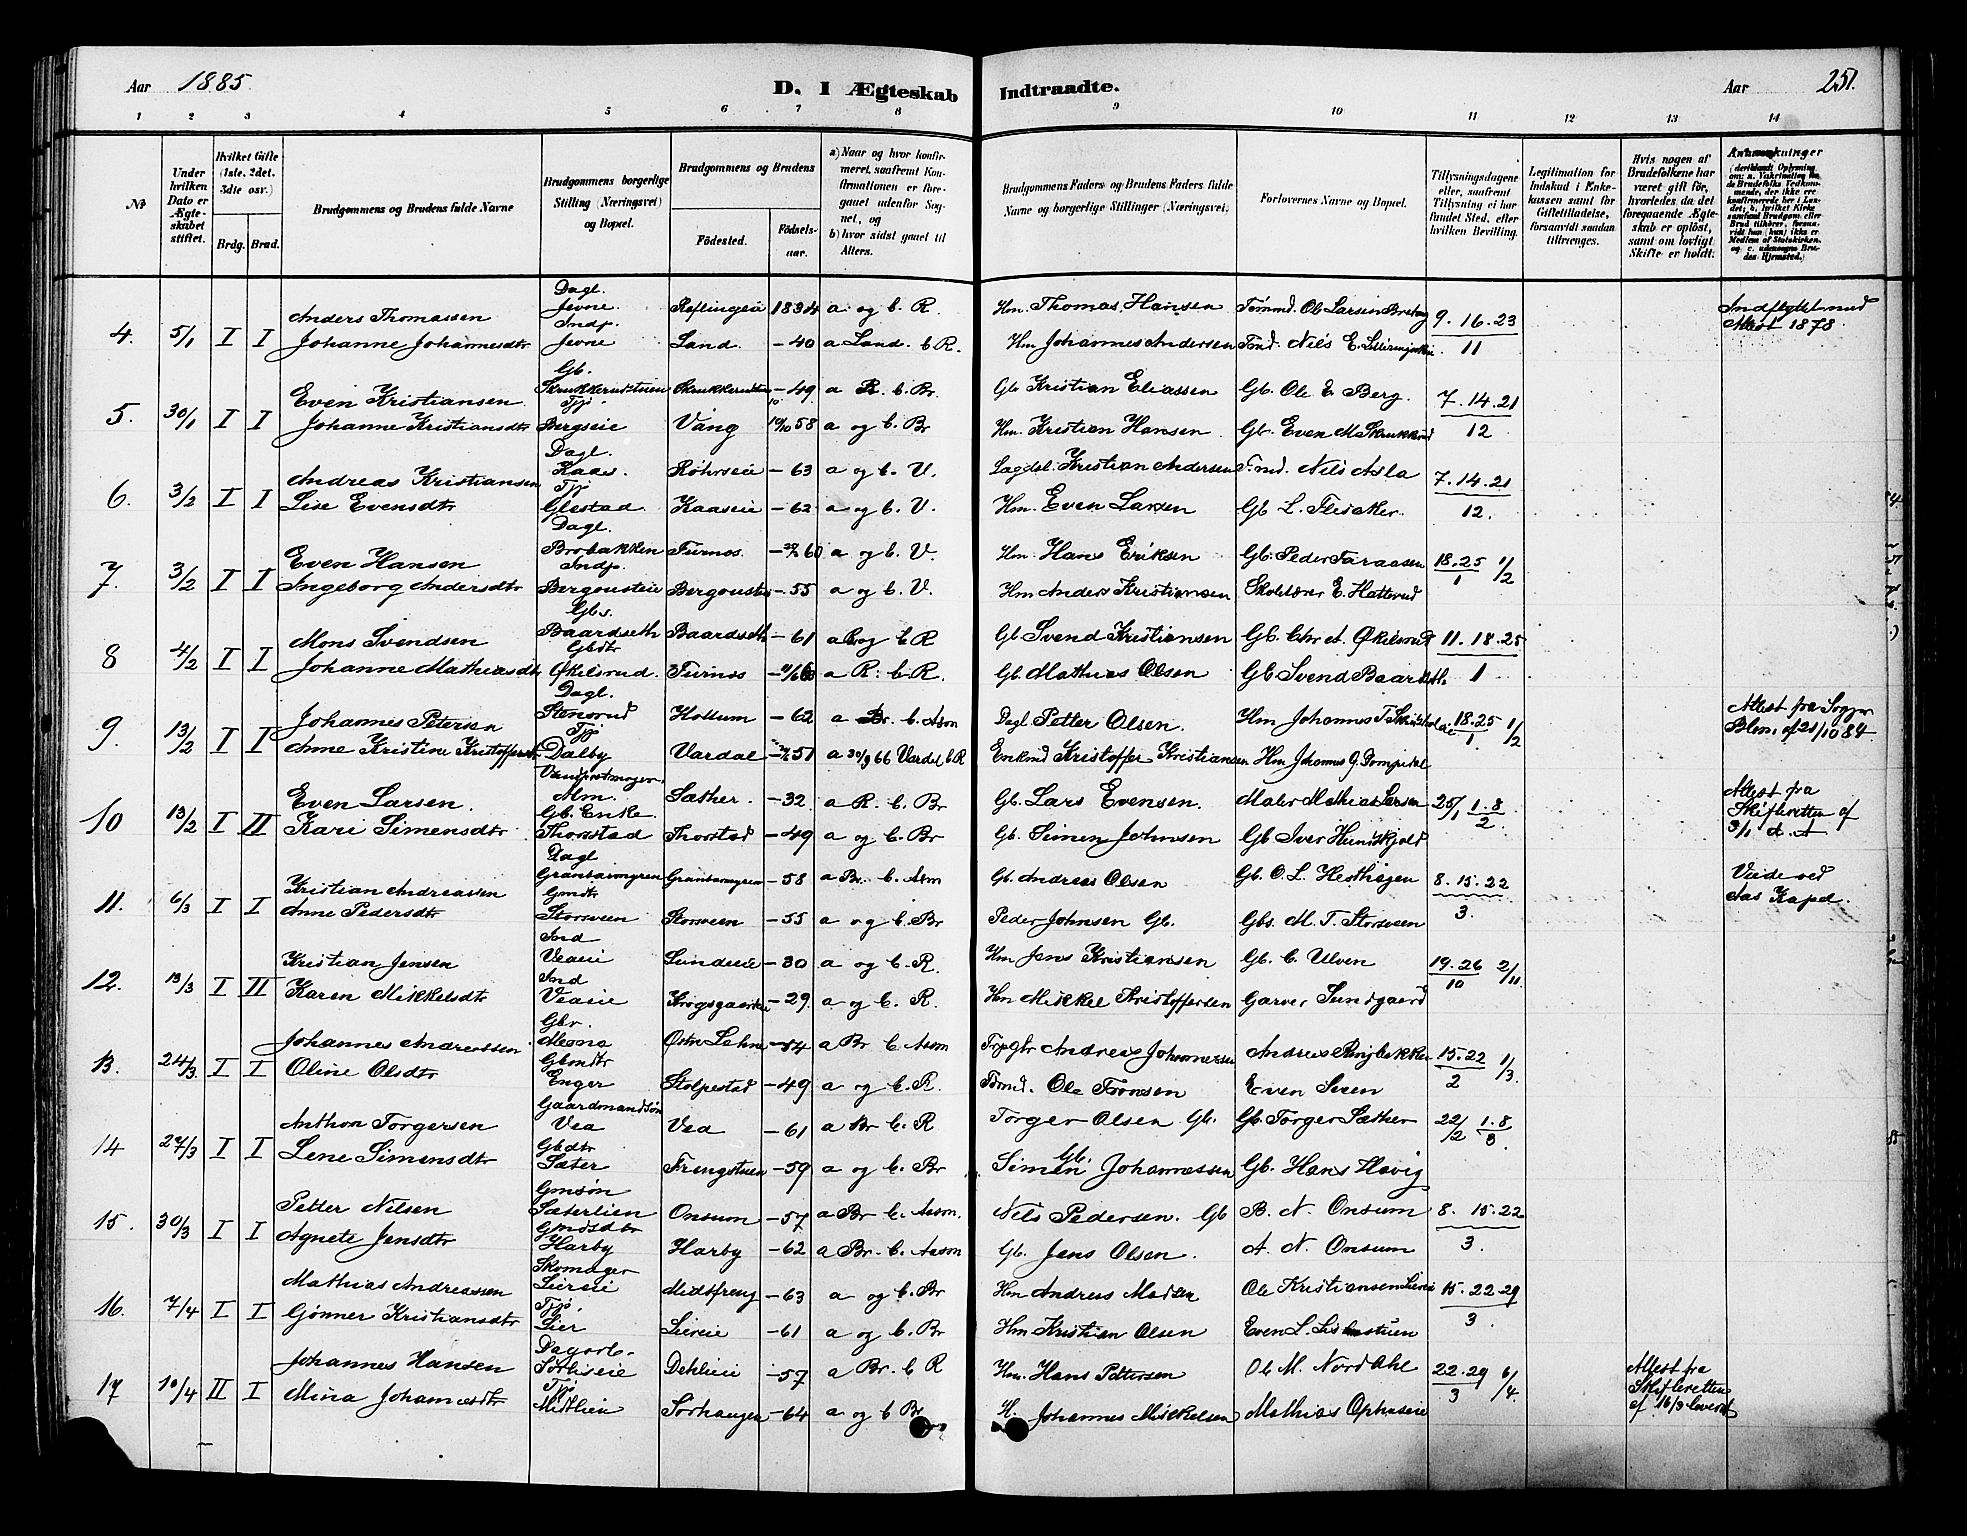 Aar 1885. D. I Ægteskab Indtraadte. Aar 251.
1 2 3 4 5 6 7 8 9 10 11 12 13 14
№
Under hvilken Dato er Ægteskabet stiftet.
Hvilket Gifte (1ste, 2det, 3die osv.)
Brdg. Brud.
Brudgommens og Brudens fulde Navne
Brudgommens borgerlige Stilling (Næringsvei) og Bopæl.
Brudgommens og Brudens
Födested. Födselsaar.
a) Naar og hvor konfirmeret, saafremt Konfirmationen er foregaaet udenfor Sognet, og
b) hvor sidst gaaet til Alters.
Brudgommens Faders og Brudens Faders fulde Navne og borgerlige Stillinger (Næringsvei)
Forlovernes Navne og Bopæl.
Tillysningsdagene eller, saafremt Tillysning ei har fundet Sted, efter hvilken Bevilling.
Legitimation for Indskud i Enkekassen samt for Giftetilladelse, forsaavidt saadan tiltrænges.
Hvis nogen af Brudefolkene har været gift før, hvorledes da det foregaaende Ægteskab er oplöst, samt om lovligt Skifte er holdt.
Anmærkninger
4. 5/1 I I Anders Thomassen Dagl. Jevne Reflingeie 1834 a og b. R. Hm. Thomas Hansen Tømmd. Ole Larsen 9. 16. 23 Indflyttet med Attest 1878.
Johanne Johannesdtr Indp. Jevne Land. -40 a Land. b R. Hm Johannes Andersen Tmd. Nils E. 11
5. 30/1 I I Even Kristiansen Gb. Skrukkerudstuen -49 a R. b. Br. Gb Kristian Eliassen Gb. Ole E Berg. 7. 14. 21
Johanne Kristiansdtr Tjp. Bergseie Vang 10/10 58 a og b. Br Hm. Kristian Hansen Gb. Even M Skrukkrud 12
6. 3/2 I I Andreas Kristiansen Dagl. Kaas. Røhrseie -63 a og b. V. Kristian Andersen Tmd. Nils Asla 7. 14. 21
Lise Evensdtr Tjp Glestad Kaaseie -62 a og b. V. Hm. Even Larsen Gb L. Flisaker. 12.
7. 3/2 I I Even Hansen Dagl. Brobakken Furnes. 60 a og b. V. Hm. Hans Eriksen Gb. Peder Faraasen 18. 25 1/2
Ingeborg Andersdtr Indp. Bergousteie -55 a og b. V. Hm Anders Kristiansen Skolelærer E. Hatterud 1
8 4/2 I I Mons Svendsen Gbs. Baardseth Baardseth -61 a og b R Gb. Svend Kristiansen Gb. Chr A. Økelsrud 11. 18. 25
Johanne Mathiasdtr Gbdtr Økelsrud. Furnes a R. b. R. Gb. Mathias Olsen Gb Svend Baardseth. 1
9. 13/2 I I Johannes Petersen Dagl. Stensrud Hollum -62 a Br. b. Aasm Dagl Petter Olsen. Hm Johannes T. 18. 25 1/2 Attest fra Sogpr Blom af 21/10 84.
Anne Kristine Kristoffersdtr Tjp Dalby Vardal 51 a 30/9 66 Vardal b R Enkmd Kristoffer Kristiansen Hm Johannes G. 1.
10 13/2 I II Even Larsen. Vandpostmager. Alm. Sæther. -32 a R. b. Br Gb. Lars Evensen. Maler Mathias Larsen 25/1 1. 8 Attest fra Skifteretten af 3/1 d. A
Kari Simensdtr Gb. Enke Thorstad Thorstad -49 a og b. Br Gb. Simen Johnsen Gb Iver Hundskjold 2
11. 6/3 I I Kristian Andreassen Dagl Granbarmyren Granbarmyren -58 a Br. b. Aasm Gb. Andreas Olsen Gb. O. L. Hesthagen 8. 15. 22 Viede ved Aas Kapel.
Anne Pedersdtr Gmdtr Storsveen Storsveen -55 a og b. Br Peder Johnsen Gb. Gbs. M. T. Storsveen 3.
12. 13/3 I II Kristian Jensen Ind Veaeie Sundeeie -30 a og b. R. Hm Jens Kristiansen Gb. C. Ulven 19. 26 2/11
Karen Mikkelsdtr Ind Veaeie -29 a og b. R. Hm Mikkel Kristoffersen Garver Sundgaard 10
13. 24/3 I I Johannes Andreassen Gbr. Østre Lehne -54 a Br b. Aasm Andreas Johannesen Andreas Ringbakken 15. 22 1/3
Oline Olsdtr Gbmdtr Enger Stolpestad -49 a og b. R. Ole Tronsen Even Sveen 2
14 27/3 I I Anthon Torgersen Gaardmandssøn Vea Vea -61 a Br b. R Torger Olsen Gb. Gb. Torger Sæther 22/2 1. 8
Lene Simensdtr Gbdtr Sæter Frengstuen -59 a og b. Br Gb. Simen Johannessen Gb. Hans Havig 3
15. 30/3 I I Petter Nilsen Gmsøn Sæterlien Onsum -57 a Br b. Aasm. Nils Pedersen. Gb B. N. Onsum 8. 15. 22
Agnete Jensdtr Gmdsdtr Harby Harby -62 a Br. b. Aasm Gb. Jens Olsen. A. N. Onsum 3.
16. 7/4 I I Mathias Andreassen Skomager Liereie Midtfreng -63 a og b. Br Hm Andreas Madsen Ole Kristiansen Liereie 15. 22. 29
Gønner Kristiansdtr Tjp. Lier Liereie -61 a og b. Br Hm Kristian Olsen Even L. 3.
17 10/4 II I Johannes Hansen Dagarb. Sørlieeie Dehlieie -57 a Br. b R Hm. Hans Pettersen Ole M. Nordahl 22. 29 6/4 Attest fra Skifteretten af 16/3 leveret
Mina Johannesdtr Tjp. Midtlien Sørhaugen -64 a og b Br H. Johannes Mikkelsen Mathias Ophuseie 3